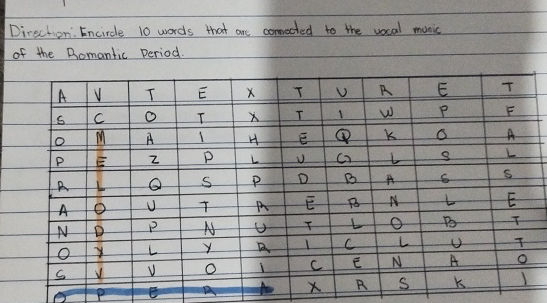 Direction: Encircle 10 words that are connected to the vocal music
of the Romantic Period.
A V T E X T U R E T
S C O T X T I W P F
O M A I H E Q K O A
P E Z P L U G L S L
R L Q S P D B A S S
A O U T R E B N L E
N D P N U T L O B T
O Y L Y R I C L U T
S V V O I C E N A O
O P E R A X R S K I